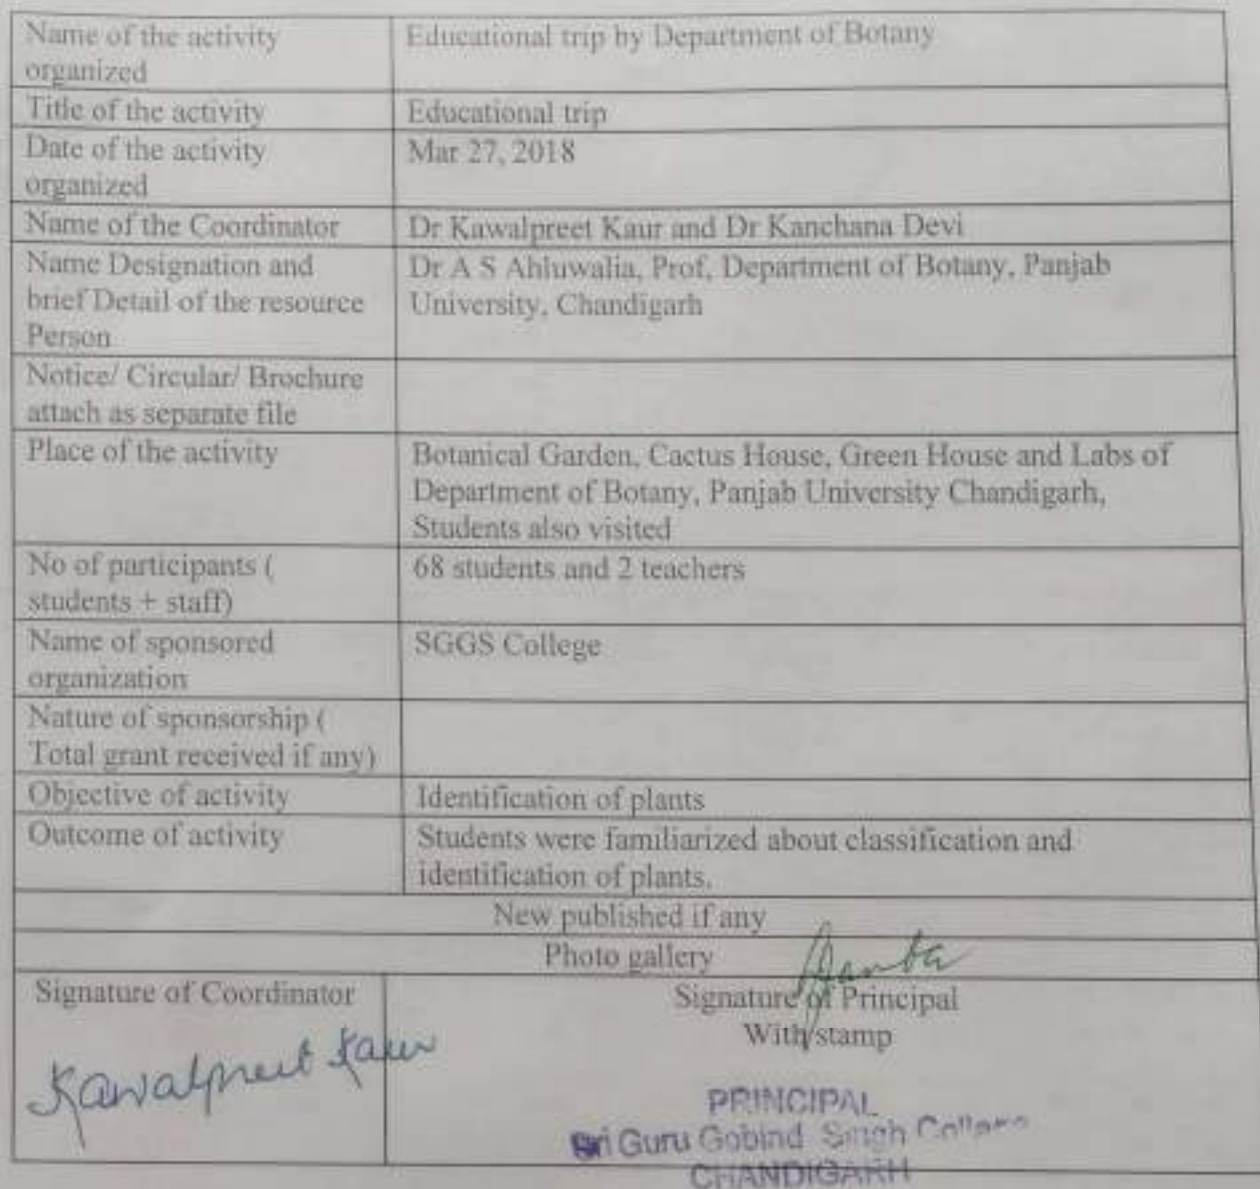 Name of the activity Educational trip by Department of Botany
organized
Title of the activity Educational trip
Date of the activity Mar 27, 2018
organized
Name of the Coordinator Dr Kawalpreet Kaur and Dr Kanchana Devi
Name Designation and Dr A S Ahluwalia, Prof, Department of Botany, Panjab
brief Detail of the resource University, Chandigarh
Person
Notice/ Circular/ Brochure
attach as separate file
Place of the activity Botanical Garden, Cactus House, Green House and Labs of
Department of Botany, Panjab University Chandigarh,
Students also visited
No of participants ( 68 students and 2 teachers
students + staff)
Name of sponsored SGGS College
organization
Nature of sponsorship (
Total grant received if any)
Objective of activity Identification of plants
Outcome of activity Students were familiarized about classification and
identification of plants.
New published if any
Photo gallery
Signature of Coordinator Signature of Principal
With stamp
Kawalpreet Kaur
PRINCIPAL
Sri Guru Gobind Singh College
CHANDIGARH